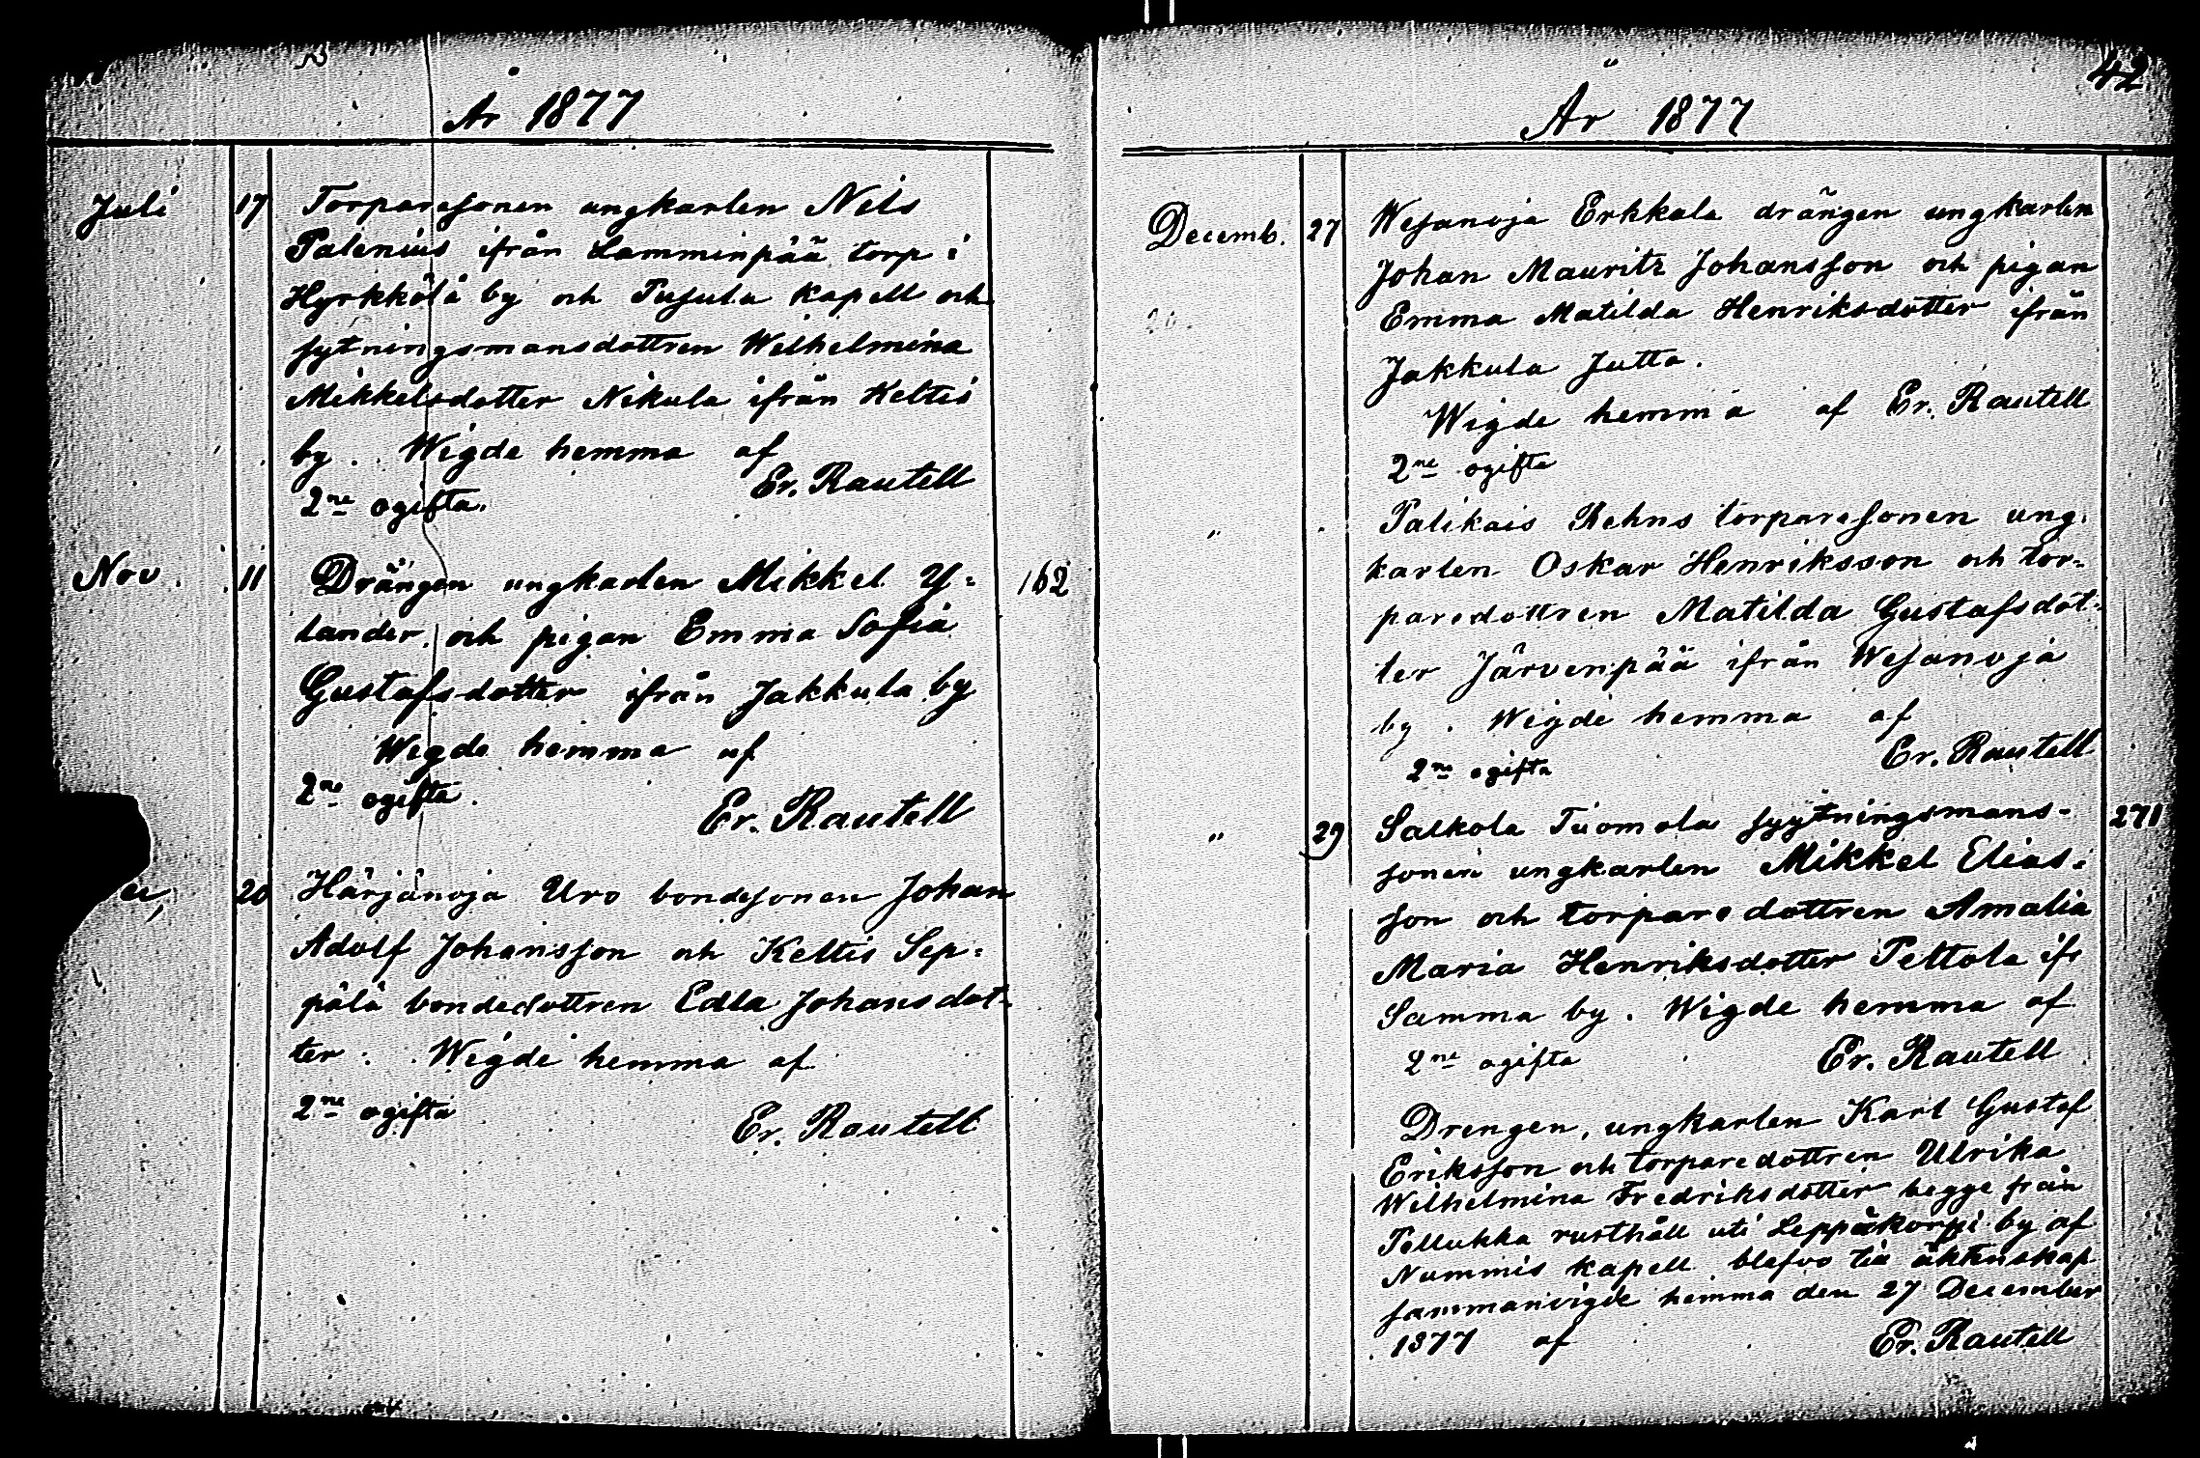 År 1877
Juli 17 Torparesonen ungkarlen Nils
Palenius ifrån Lamminpää torp i
Hyrkkölä by och Pusula Kapell och
sytningsmansdottren Wilhelmina
Mikkelsdotter Nikula ifrån Keltis
by. Wigde hemma af
Er. Rautell
2ne ogifta.
Nov. 11 Drängen ungkarlen Mikkel Y= 162
lander och pigan Emma Sofia
Gustafsdotter ifrån Jakkula by
Wigde hemma af
2ne ogifta.
Er. Rautell
20 Härjänoja Uro bondesonen Johan
Adolf Johansson och Keltis Sep=
pälä bondedottren Edla Johansdot=
ter. Wigde hemma af
2ne ogifta
Er. Rautell
42
År 1877
Decemb. 27 Wesanoja Erkkala drängen ungkarlen
Johan Mauritz Johansson och pigan
Emma Matilda Henriksdotter ifrån
Jakkula Jutta.
Wigde hemma af Er. Rautell
2ne ogifta
" Palikais Rehns torparesonen ung=
karlen Oskar Henriksson och tor=
paredottren Matilda Gustafsdot=
ter Järvenpää ifrån Wesanoja
by. Wigde hemma af
Er. Rautell
2ne ogifta
" 29 Salkola Tuomola syytningsmans= 271
sonen ungkarlen Mikkel Elias=
son och torparedottren Amalia
Maria Henriksdotter Peltola ifr
Samma by. Wigde hemma af
2ne ogifta Er. Rautell
Drengen, ungkarlen Karl Gustaf
Eriksson och torparedottren Ulrika
Wilhelmina Fredriksdotter begge från
Pellukka rusthåll uti Leppäkorpi by af
Nummis kapell blefvo till äktenskap
sammanvigde hemma den 27 December
1877 af Er. Rautell